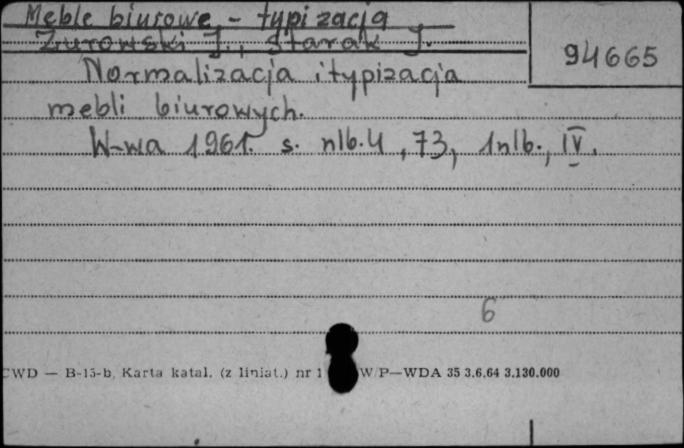 Meble biurowe - typizacja
Żurowski J., Starak J.
94665
Normalizacja i typizacja
mebli biurowych.
W-wa 1961. s. nlb. 4, 73, 1nlb., IV.
6
CWD — B-15-b, Karta katal. (z liniat.) nr 1 W/P—WDA 35 3.6.64 3.130.000